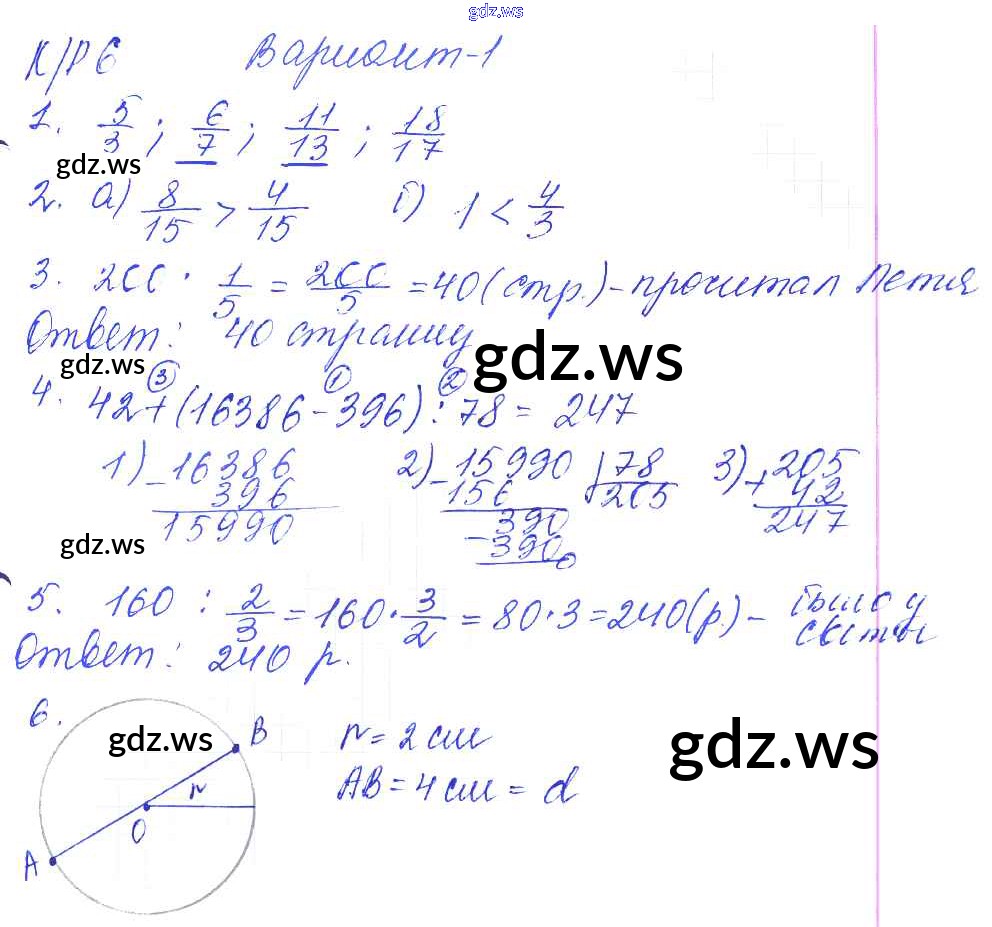 gdz.ws
К/Р 6 Вариант-1
1. 5/3 ; 6/7 ; 11/13 ; 18/17
gdz.ws
2. а) 8/15 > 4/15 б) 1 < 4/3
3. 200 · 1/5 = 200/5 = 40 (стр.) - прочитал Петя
Ответ: 40 страниц
gdz.ws gdz.ws
③ ① ②
4. 42 + (16386 - 396) : 78 = 247
1) - 16386 2) - 15990 | 78 3) + 205
396 156 205 42
15990 390 247
- 390
0
gdz.ws
5. 160 : 2/3 = 160 · 3/2 = 80 · 3 = 240 (р.) - было у
Светы
Ответ: 240 р.
6.
gdz.ws B r = 2 см gdz.ws
r AB = 4 см = d
O
A